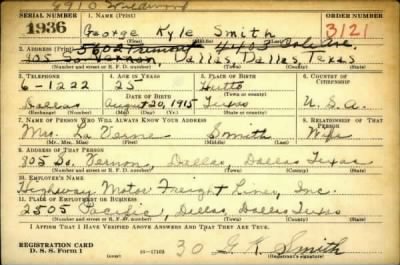 6910
SERIAL NUMBER 1. NAME (Print) ORDER NUMBER
1936 George Kyle Smith 3121
(First) (Middle) (Last)
2. ADDRESS (Print) 5602 4103 Cole Ave.
805 So. Vernon, Dallas, Dallas, Texas
(Number and street or R. F. D. number) (Town) (County) (State)
3. TELEPHONE 4. AGE IN YEARS 5. PLACE OF BIRTH 6. COUNTRY OF CITIZENSHIP
6-1222 25 Hutto
DATE OF BIRTH (Town or county)
Dallas August 20, 1915 Texas U. S. A.
(Exchange) (Number) (Mo.) (Day) (Yr.) (State or country)
7. NAME OF PERSON WHO WILL ALWAYS KNOW YOUR ADDRESS 8. RELATIONSHIP OF THAT PERSON
Mrs. La Verne Smith Wife
(Mr., Mrs., Miss) (First) (Middle) (Last)
9. ADDRESS OF THAT PERSON
805 So. Vernon Dallas Dallas Texas
(Number and street or R. F. D. number) (Town) (County) (State)
10. EMPLOYER'S NAME
Highway Motor Freight Lines, Inc.
11. PLACE OF EMPLOYMENT OR BUSINESS
2505 Pacific, Dallas Dallas Texas
(Number and street or R. F. D. number) (Town) (County) (State)
I AFFIRM THAT I HAVE VERIFIED ABOVE ANSWERS AND THAT THEY ARE TRUE.
REGISTRATION CARD
D. S. S. Form 1 16-17105 30 G. K. Smith
(Registrant's signature)